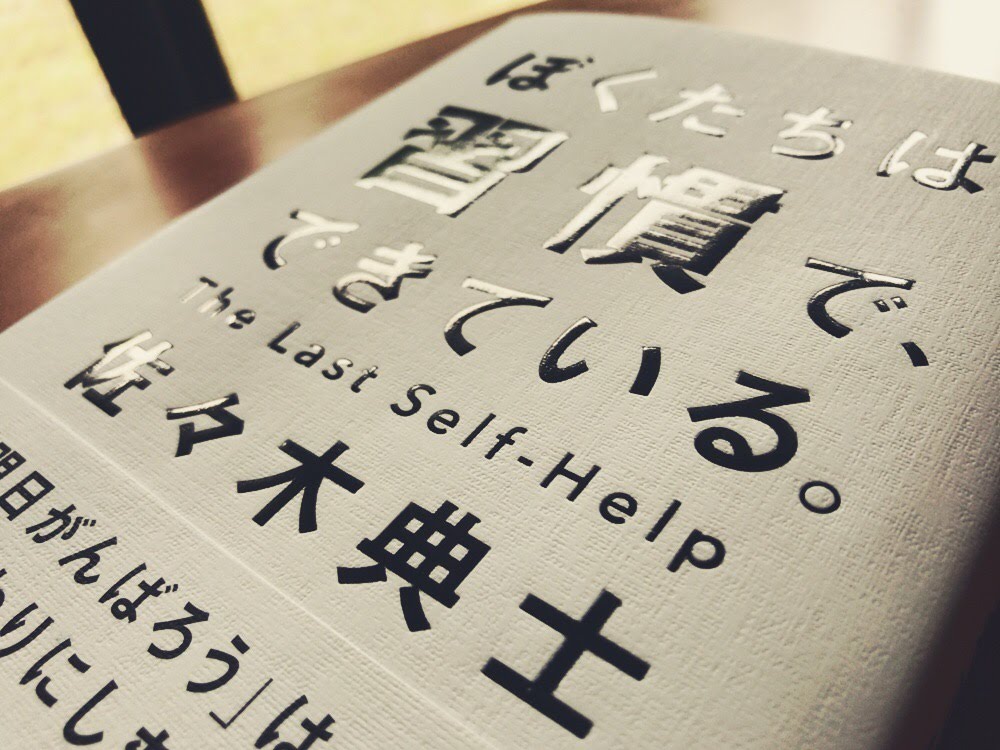 ぼくたちは
習慣で、
できている。
The Last Self-Help
佐々木典士
明日がんばろう」は
りにしま